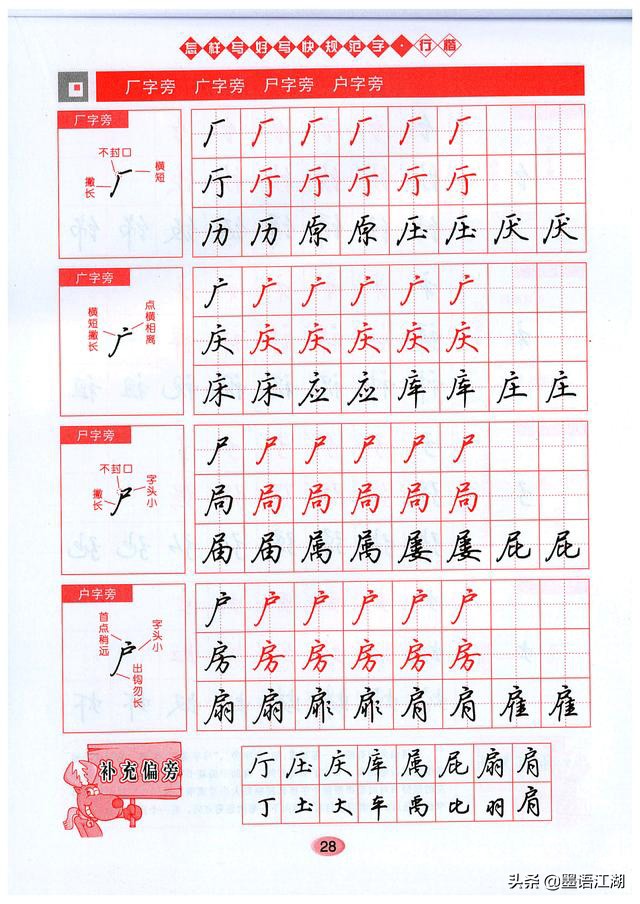 怎样写好写快规范字·行楷
厂字旁 广字旁 尸字旁 户字旁
厂字旁
不封口
横短
撇长
厂 厂 厂 厂 厂 厂
厅 厅 厅 厅 厅 厅
历 历 原 原 压 压 厌 厌
广字旁
点横相离
横短撇长
广 广 广 广 广 广
庆 庆 庆 庆 庆 庆
床 床 应 应 库 库 庄 庄
尸字旁
不封口
字头小
撇长
尸 尸 尸 尸 尸 尸
局 局 局 局 局 局
届 届 属 属 屡 屡 屁 屁
户字旁
首点稍远
字头小
出钩勿长
户 户 户 户 户 户
房 房 房 房 房 房
扇 扇 扉 扉 肩 肩 雇 雇
补充偏旁
厅 压 庆 库 属 屁 扇 肩
丁 圡 大 车 禹 比 羽 肩
28
头条 @墨语江湖